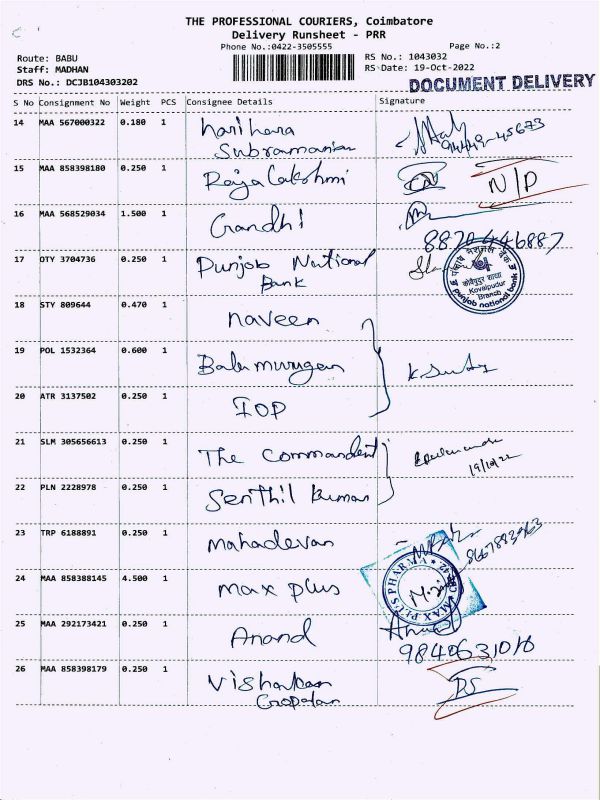 THE PROFESSIONAL COURIERS, Coimbatore
Delivery Runsheet - PRR
Phone No.:0422-3505555 Page No.:2
Route: BABU RS No.: 1043032
Staff: MADHAN RS Date: 19-Oct-2022
DRS No.: DCJB104303202
DOCUMENT DELIVERY
S No Consignment No Weight PCS Consignee Details Signature
14 MAA 567000322 0.180 1 harihara
Subramanian
15 MAA 858398180 0.250 1 RajaLakshmi N/P
16 MAA 568529034 1.500 1 Gandhi
8870446887
17 OTY 3704736 0.250 1 Punjab National
Bank
पंजाब नैशनल बैंक
कोवैपुदुर शाखा
Kovaipudur
Branch
punjab national bank
18 STY 809644 0.470 1 naveen
19 POL 1532364 0.600 1 Balamurugan
20 ATR 3137502 0.250 1 IOP
21 SLM 305656613 0.250 1 The Commandent
19/10/22
22 PLN 2228978 0.250 1 Senthil kumar
23 TRP 6188891 0.250 1 mahadevan
24 MAA 858388145 4.500 1 max plus
MAX PLUS PHARMA
25 MAA 292173421 0.250 1 Anand
26 MAA 858398179 0.250 1 Vishakan
Gopalan